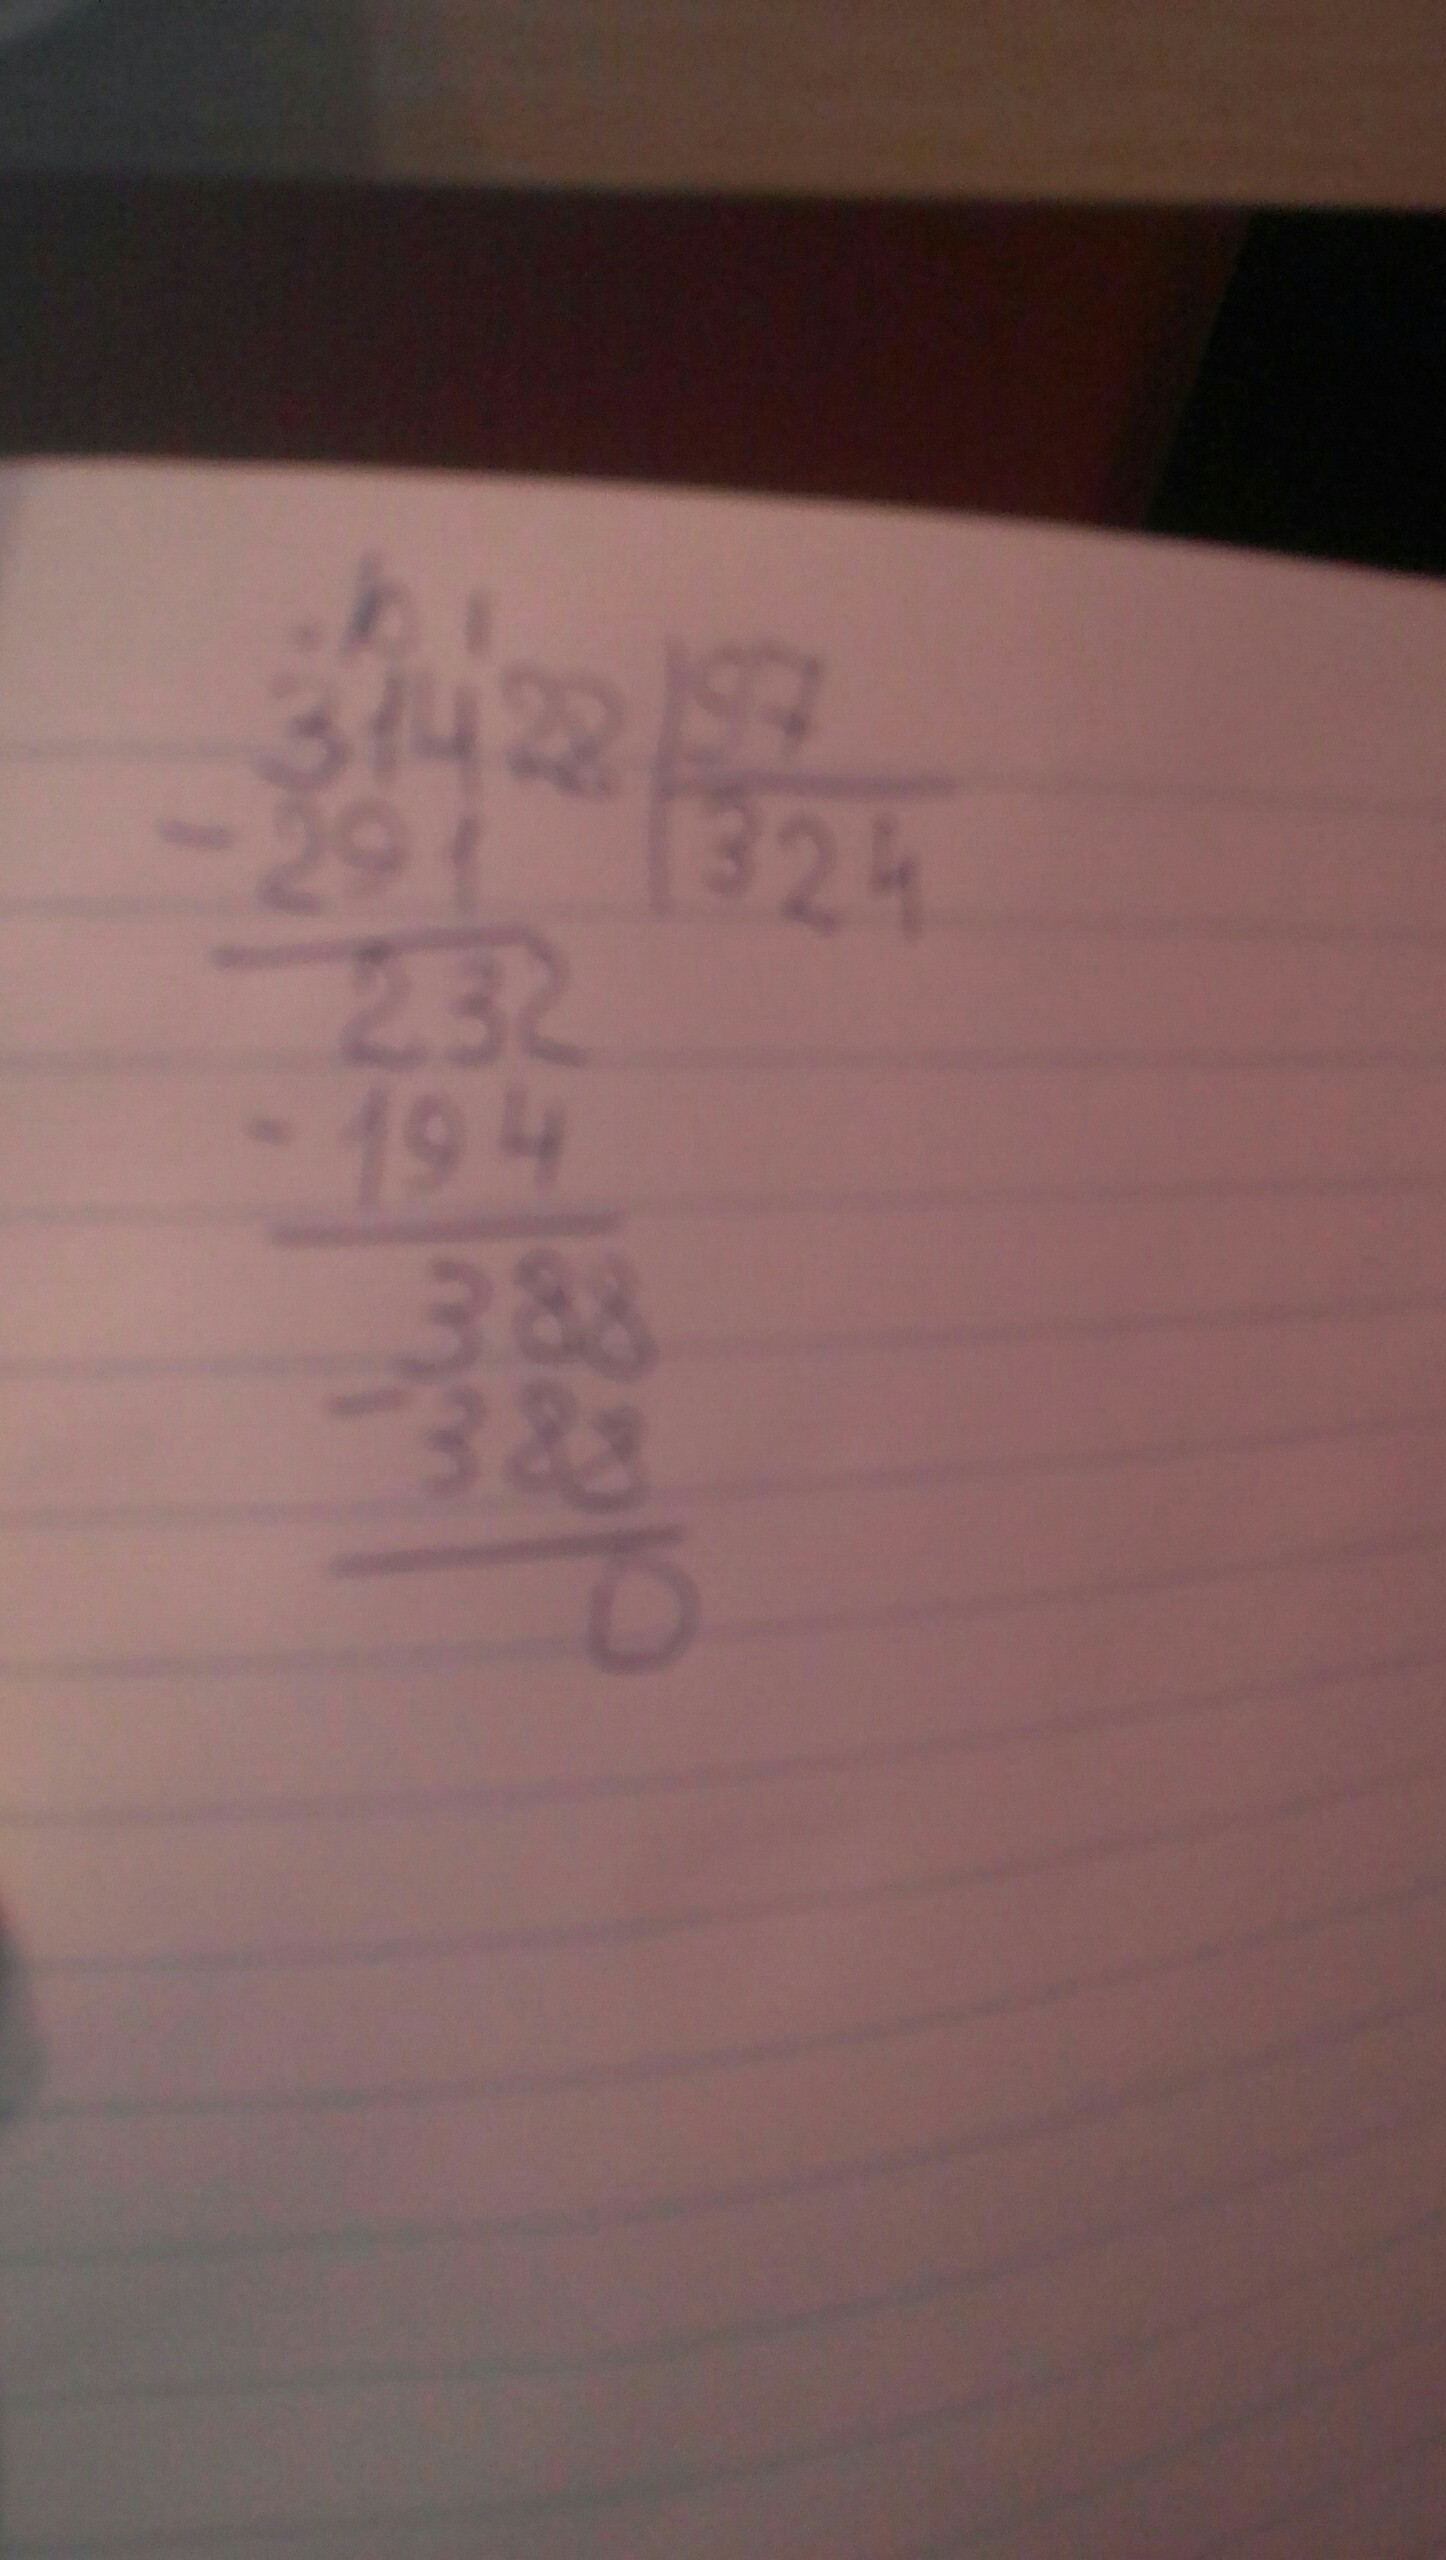 31428 97
- 291 324
232
- 194
388
- 388
0